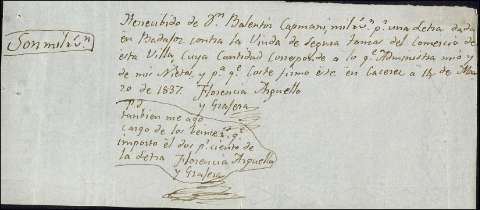 Son mil r.s v.n
He recibido de D.n Balentin Capmani, mil r.s v.n p.r una Letra dada
en Badajoz contra la Viuda de Segura tomas del Comercio de
esta Villa, cuya Cantidad corresponde a lo q.e Administra mio y
de mis Nietos, y p.a q.e Coste firmo este en Caceres a 14 de Mar
zo de 1837. Florencia Arguello
y Grafera
P.d.
tanbien me ago
cargo de los veinte r.s q.e
inporto el dos p.r ciento de
la Letra Florencia Arguello
y Grafera